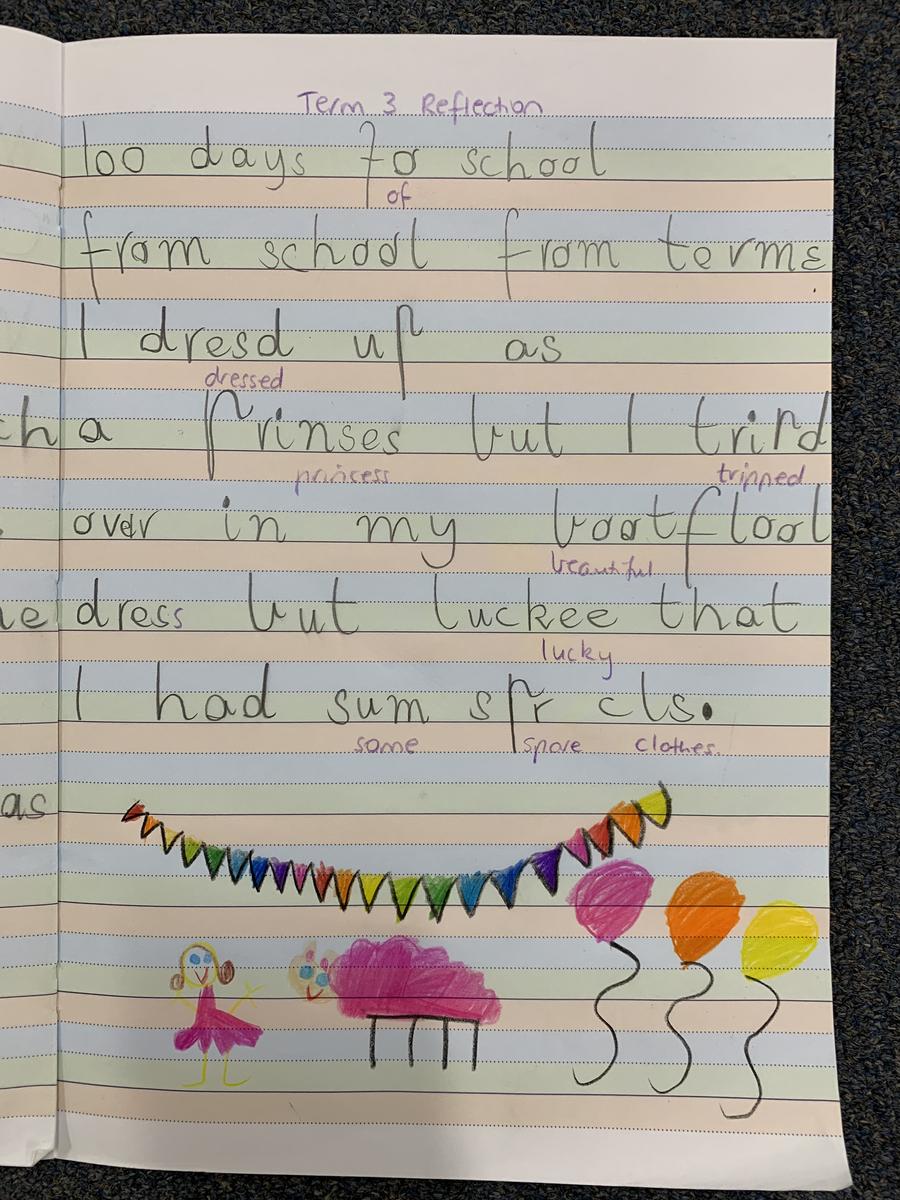 Term 3 Reflection
100 days fo school
of
from school from terms
I dresd up as
dressed
cha prinses but I tripd
princess tripped
over in my bootflool
beautiful
dress but luckee that
lucky
I had sum spr cls.
some spare clothes.
as